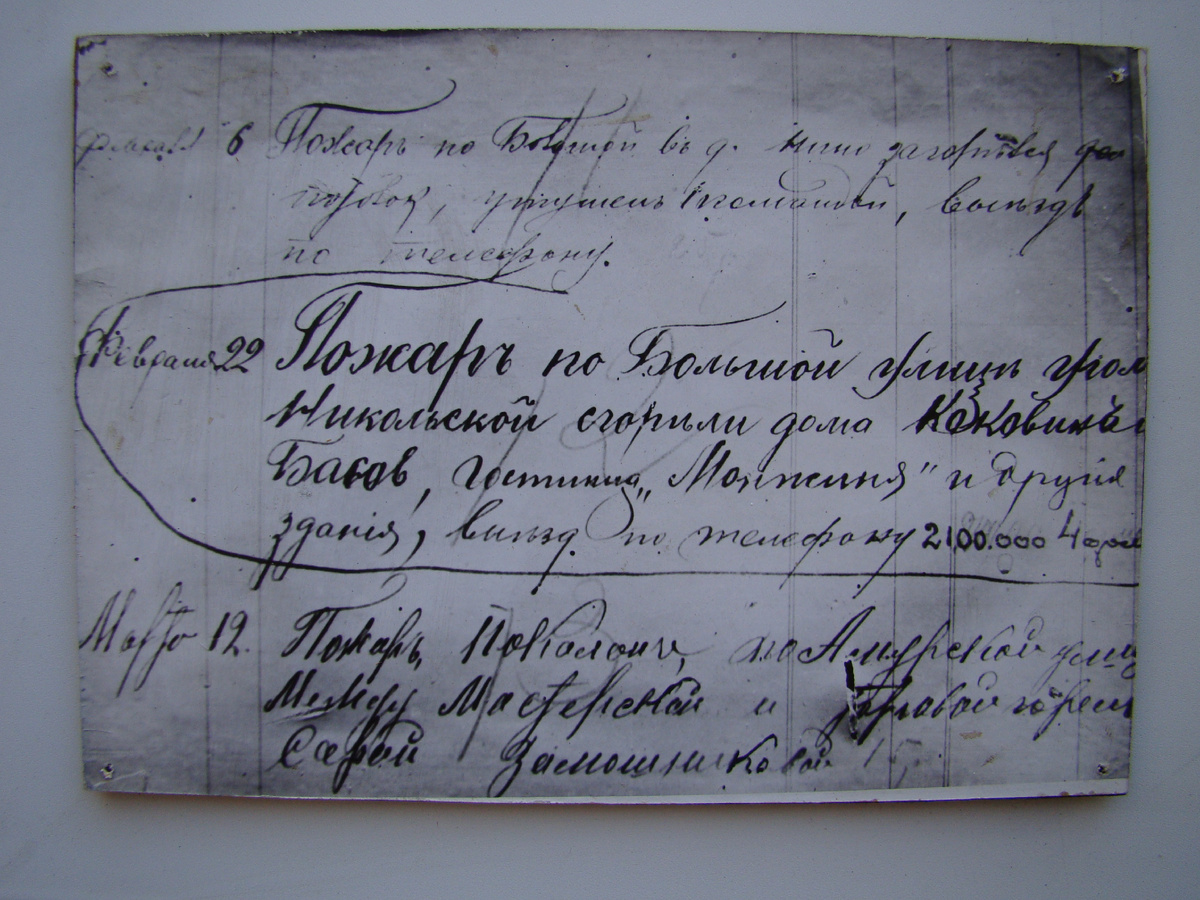 6 Пожаръ по Большой въ д. загорѣлся
потолок, утушенъ командой, выѣздъ
по телефону.
Февраля 22 Пожаръ по Большой улицъ угол
Никольской сгорѣли дома Коковина и
Басов, гостиница „Монжиня" и другія
зданія, выѣзд. по телефону 2100.000
Марта 12. Пожаръ по Амурской улиц
Между Мастерской и
Сарай Замошниковой